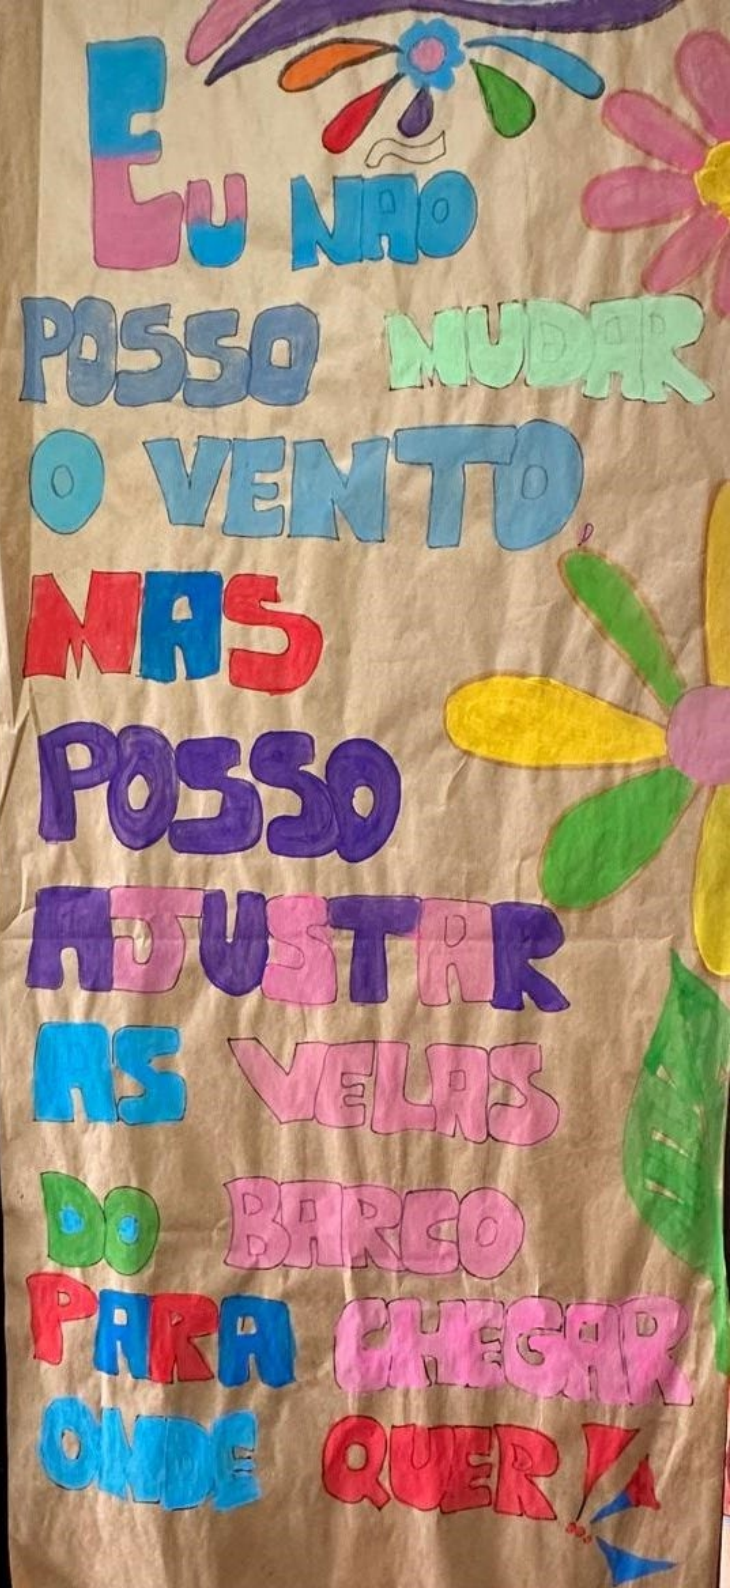 EU NÃO
POSSO MUDAR
O VENTO,
MAS
POSSO
AJUSTAR
AS VELAS
DO BARCO
PARA CHEGAR
ONDE QUER!